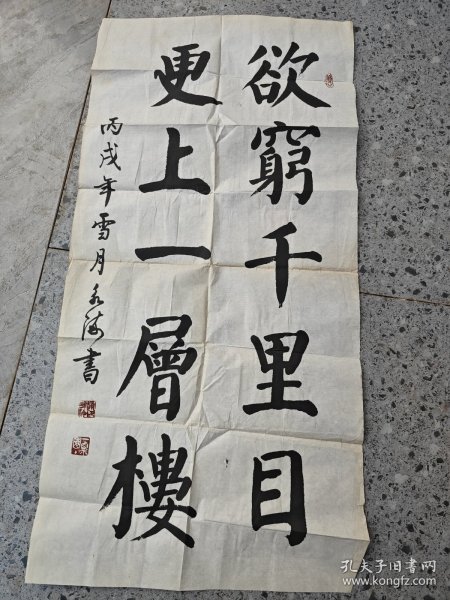 欲窮千里目
更上一層樓
丙戌年雪月永海書
孔夫子旧书网
www.kongfz.com